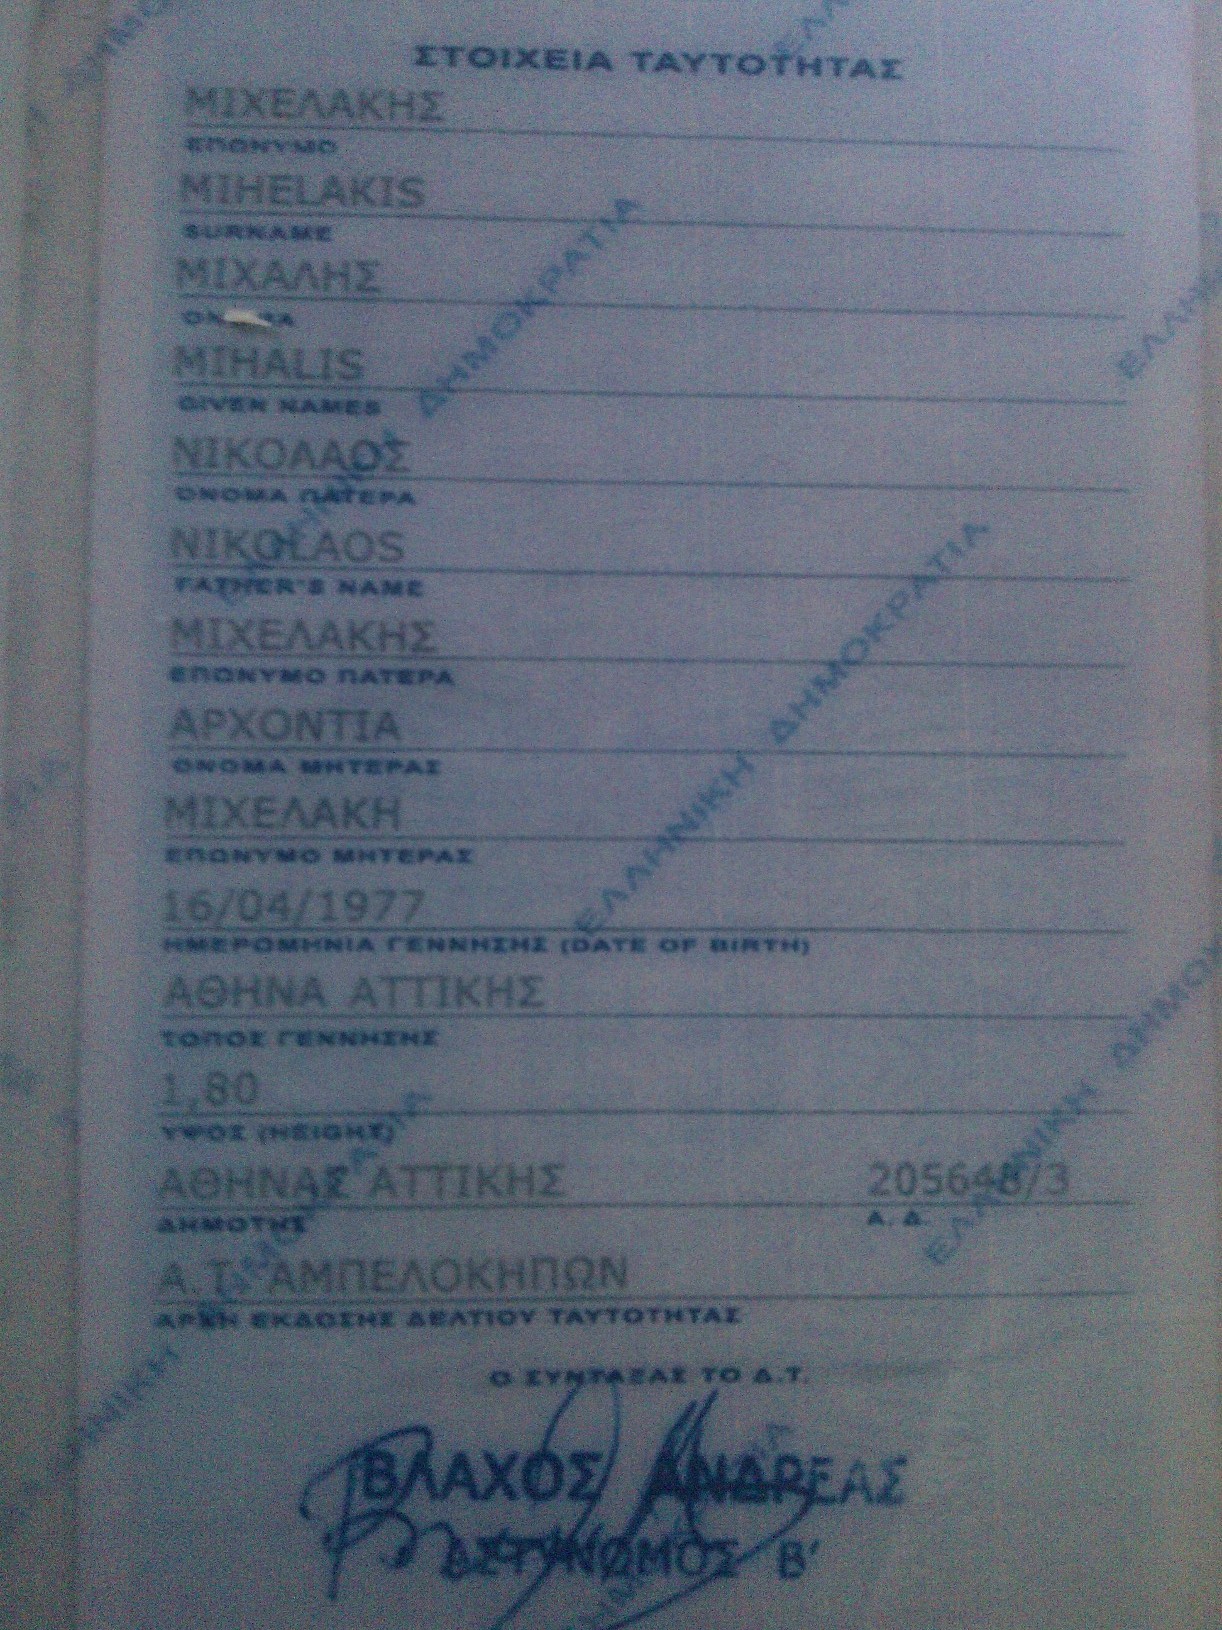 ΣΤΟΙΧΕΙΑ ΤΑΥΤΟΤΗΤΑΣ
ΜΙΧΕΛΑΚΗΣ
ΕΠΩΝΥΜΟ
MIHELAKIS
SURNAME
ΜΙΧΑΛΗΣ
ΟΝΟΜΑ
MIHALIS
GIVEN NAMES
ΝΙΚΟΛΑΟΣ
ΟΝΟΜΑ ΠΑΤΕΡΑ
NIKOLAOS
FATHER'S NAME
ΜΙΧΕΛΑΚΗΣ
ΕΠΩΝΥΜΟ ΠΑΤΕΡΑ
ΑΡΧΟΝΤΙΑ
ΟΝΟΜΑ ΜΗΤΕΡΑΣ
ΜΙΧΕΛΑΚΗ
ΕΠΩΝΥΜΟ ΜΗΤΕΡΑΣ
16/04/1977
ΗΜΕΡΟΜΗΝΙΑ ΓΕΝΝΗΣΗΣ (DATE OF BIRTH)
ΑΘΗΝΑ ΑΤΤΙΚΗΣ
ΤΟΠΟΣ ΓΕΝΝΗΣΗΣ
1,80
ΥΨΟΣ (HEIGHT)
ΑΘΗΝΑΣ ΑΤΤΙΚΗΣ 205648/3
ΔΗΜΟΤΗΣ Α.Δ.
Α.Τ. ΑΜΠΕΛΟΚΗΠΩΝ
ΑΡΧΗ ΕΚΔΟΣΗΣ ΔΕΛΤΙΟΥ ΤΑΥΤΟΤΗΤΑΣ
Ο ΣΥΝΤΑΞΑΣ ΤΟ Δ.Τ.
ΒΛΑΧΟΣ ΑΝΔΡΕΑΣ
ΑΣΤΥΝΟΜΟΣ Β'
ΕΛΛΗΝΙΚΗ ΔΗΜΟΚΡΑΤΙΑ
ΕΛΛΗΝΙΚΗ ΔΗΜΟΚΡΑΤΙΑ